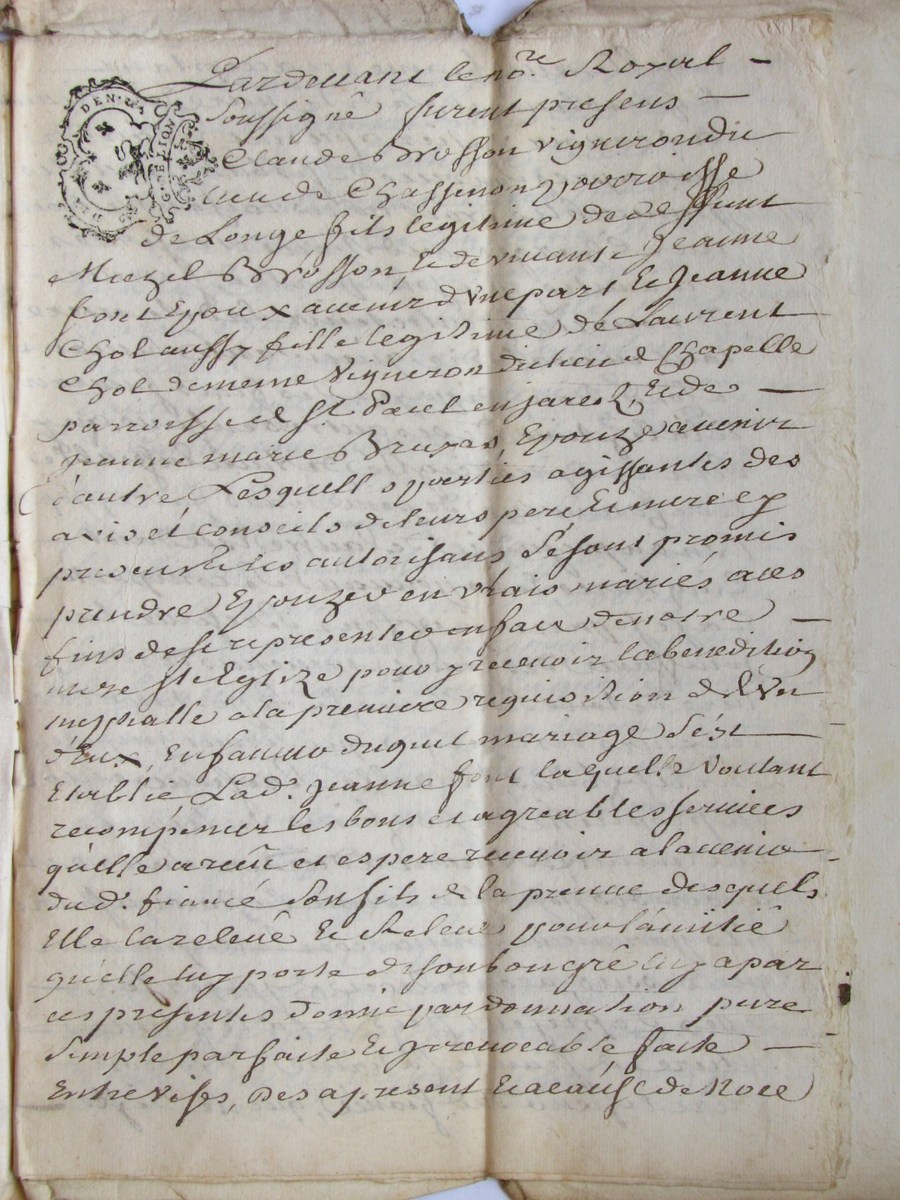 DEN. GEN. DE LION
Pardevant le no.re Royal
Soussigné furent presens
Claude Brosson vigneron du
lieu de Chassenon parroisse
de Longe fils legitime de deffunt
Michel Brosson, et de vivante Jeanne
font Epoux avenir d'une part et Jeanne
Chol aussy fille legitime de Laurent
Chol de meme vigneron du lieu de Chapelle
parroisse de St. Paul en jarest, et de
jeanne marie Bruyas, Epouze avenir
d'autre Lesquelles parties agissantes des
avis et conseils de leurs pere et mere cy
presents et les autorisans Se sont promis
prendre Epouzer en vrais mariés a ces
fins de se representer en face de notre
mere Ste Eglize pour y recevoir la benediction
nuptialle a la premiere requisition de l'un
d'Eux, En faveur duquel mariage S'est
Etablie Lad. jeanne font laquelle voulant
recompenser les bons et agreables services
qu'elle a receu et espere recevoir a lavenir
dud. fiancé Son fils de la preuve desquels
Elle la relevé et Releve pour l'amitié
qu'elle luy porte de son bon gré luy a par
ces presentes donné par donnation pure
Simple parfaite et jrrevocable faite
Entre vifs, Des apresent et a cause de Noce